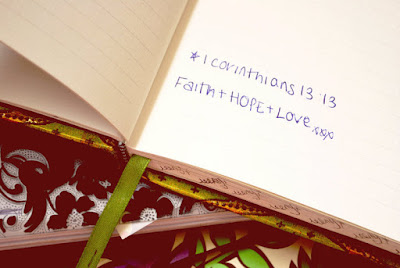 * 1 corinthians 13:13
Faith + HOPE + Love